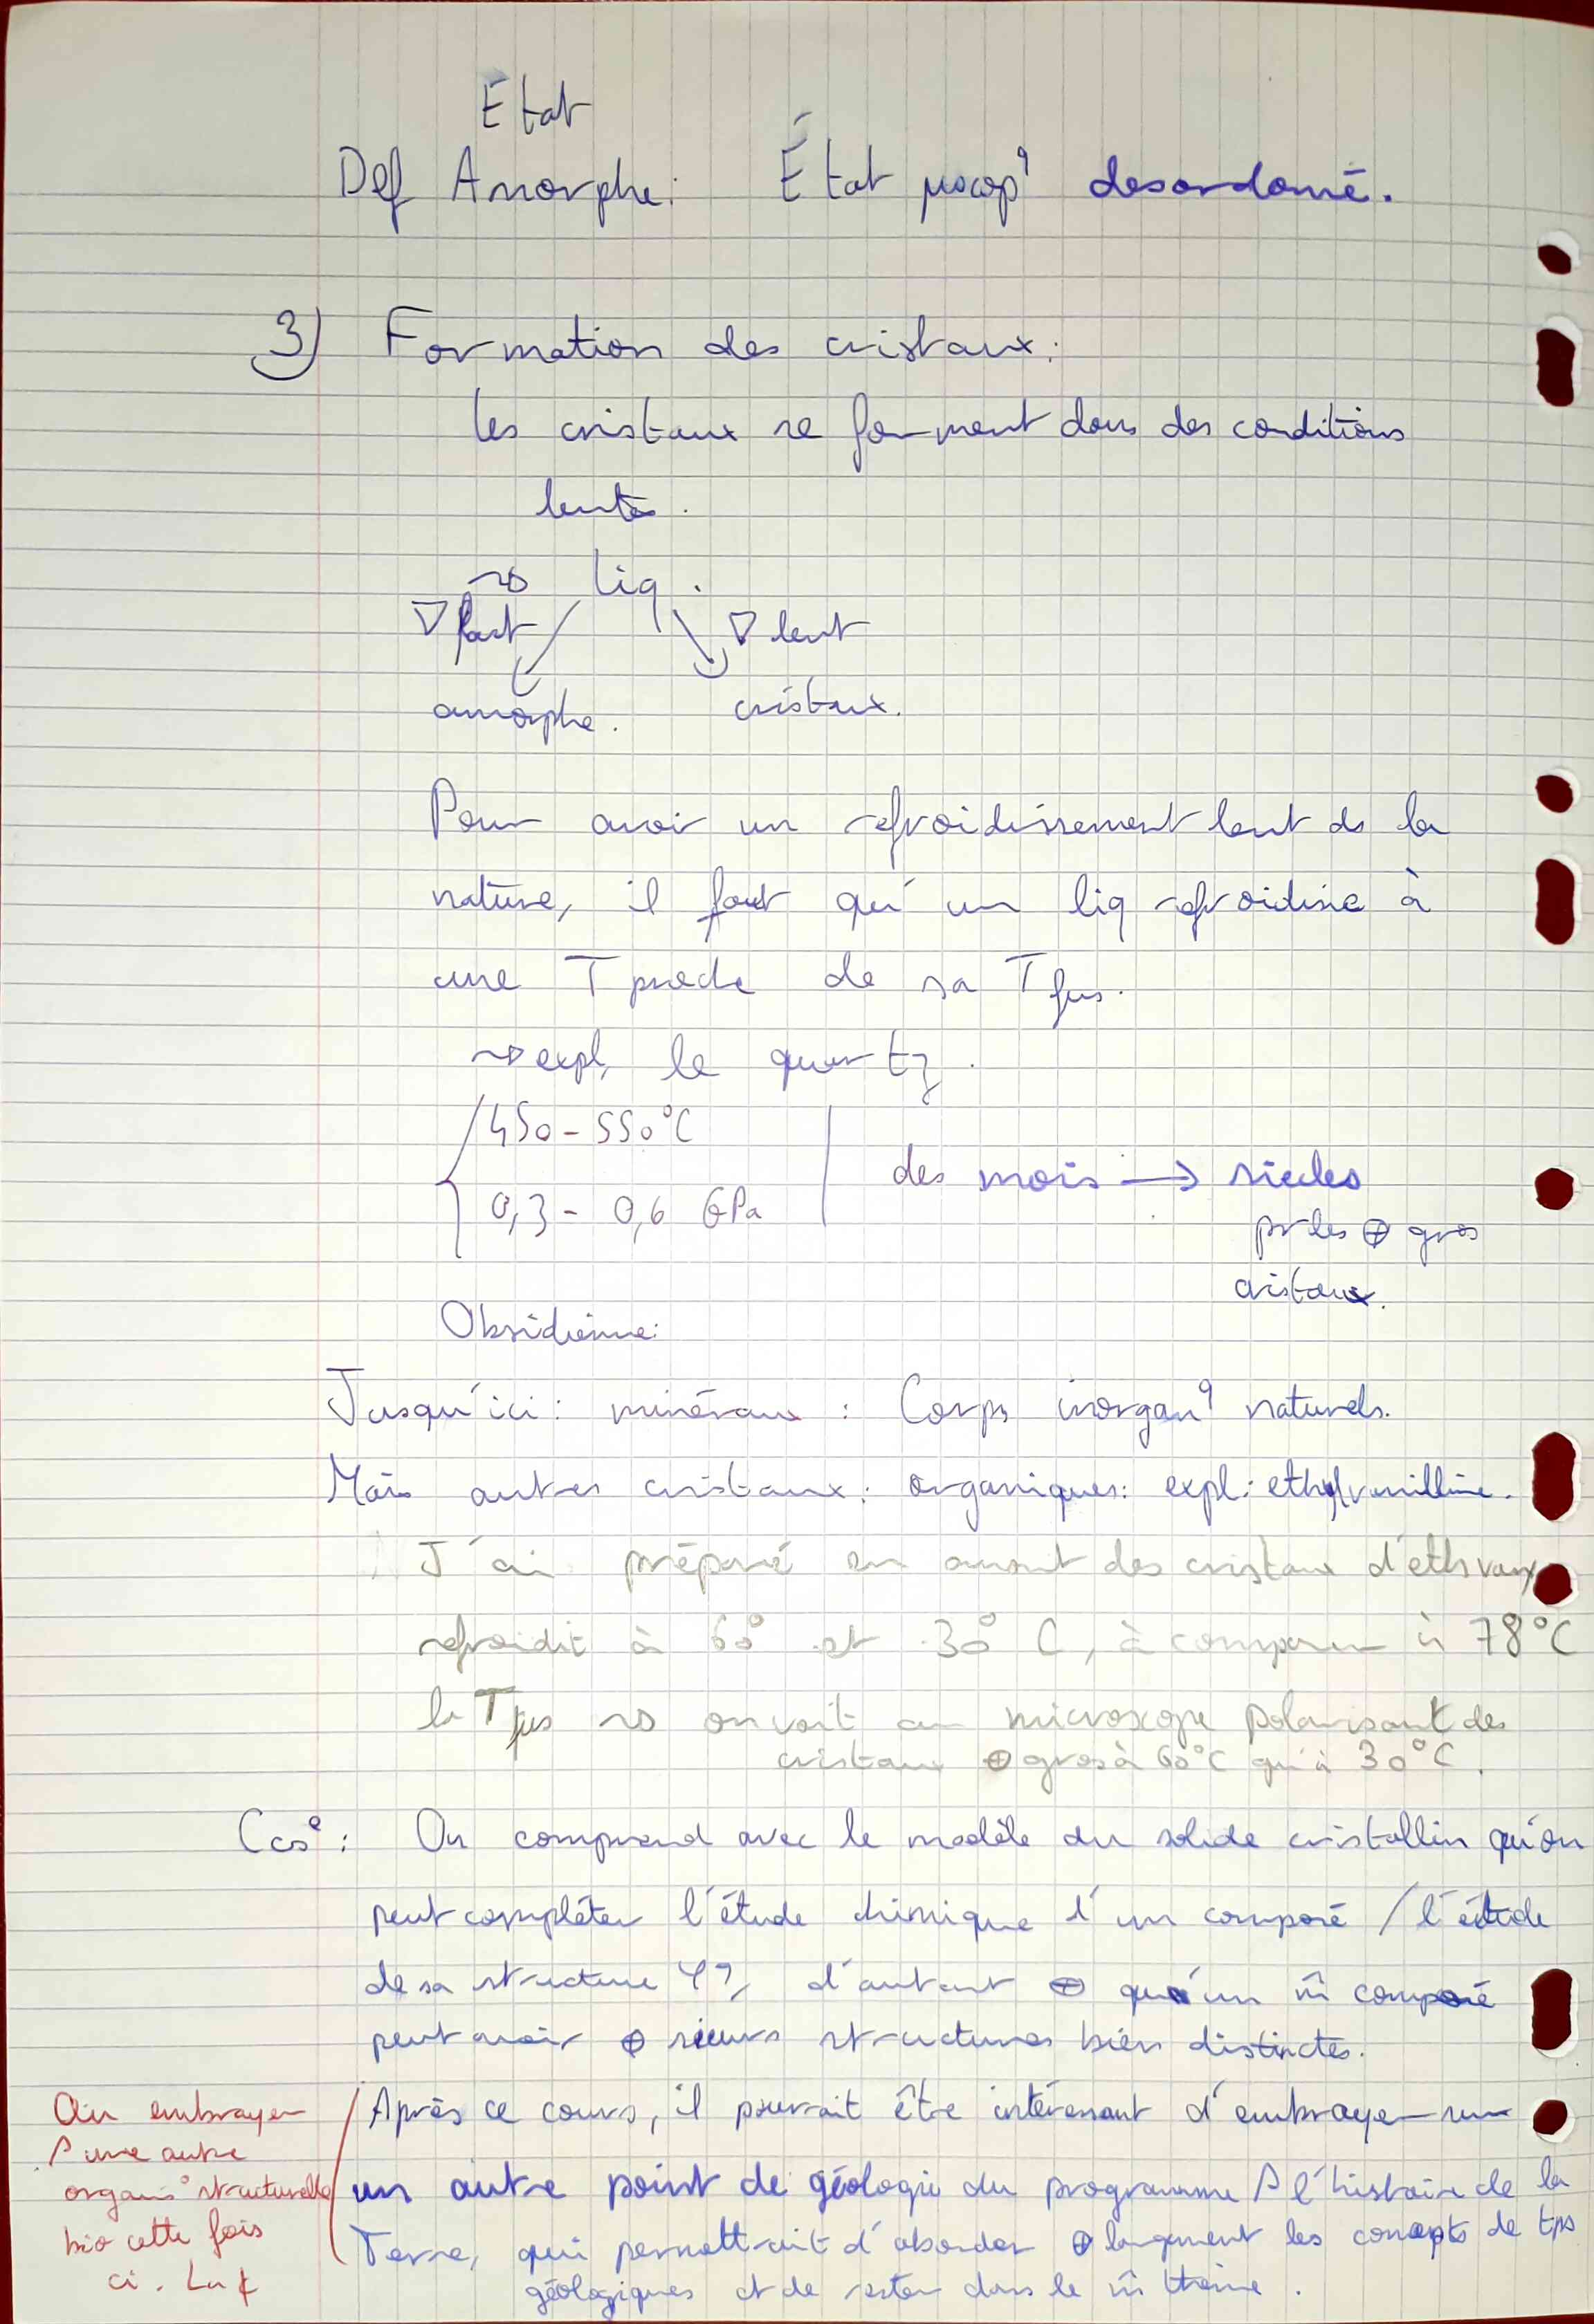 Etat
Def Amorphe: État µscopq desordonné.
3) Formation des cristaux:
les cristaux se forment dans des conditions
lentes.
~> liq.
∇ fast ∇ lent
amorphe. cristaux.
Pour avoir un refroidissement lent ds la
nature, il faut qu'un liq refroidisse à
une T proche de sa Tfus.
~> expl, le quartz.
450 - 550°C
des mois → siècles
0,3 - 0,6 GPa
pr les ⊕ gros
cristaux.
Obsidienne:
Jusqu'ici: minéraux: Corps inorganq naturels.
Mais autres cristaux: organiques: expl: ethylvanilline.
J'ai préparé en amont des cristaux d'eth van
refroidit à 60° et 30° C, à comparer à 78°C
la Tfus ~> on voit au microscope polarisant des
cristaux ⊕ gros à 60°C qu'à 30°C.
Ccs°: On comprend avec le modèle du solide cristallin qu'on
peut compléter l'étude chimique d'un composé / l'étude
de sa structure φq, d'autant ⊕ qu'un m̂ composé
peut avoir ⊕sieurs structures bien distinctes.
Après ce cours, il pourrait être intéressant d'embrayer sur
un autre point de géologie du programme, l'histoire de la
Terre, qui permettrait d'aborder ⊕ largement les concepts de tps
géologiques et de rester dans le m̂ thème.
Ou embrayer
une autre
organis° structurelle
bio cette fois
ci. La